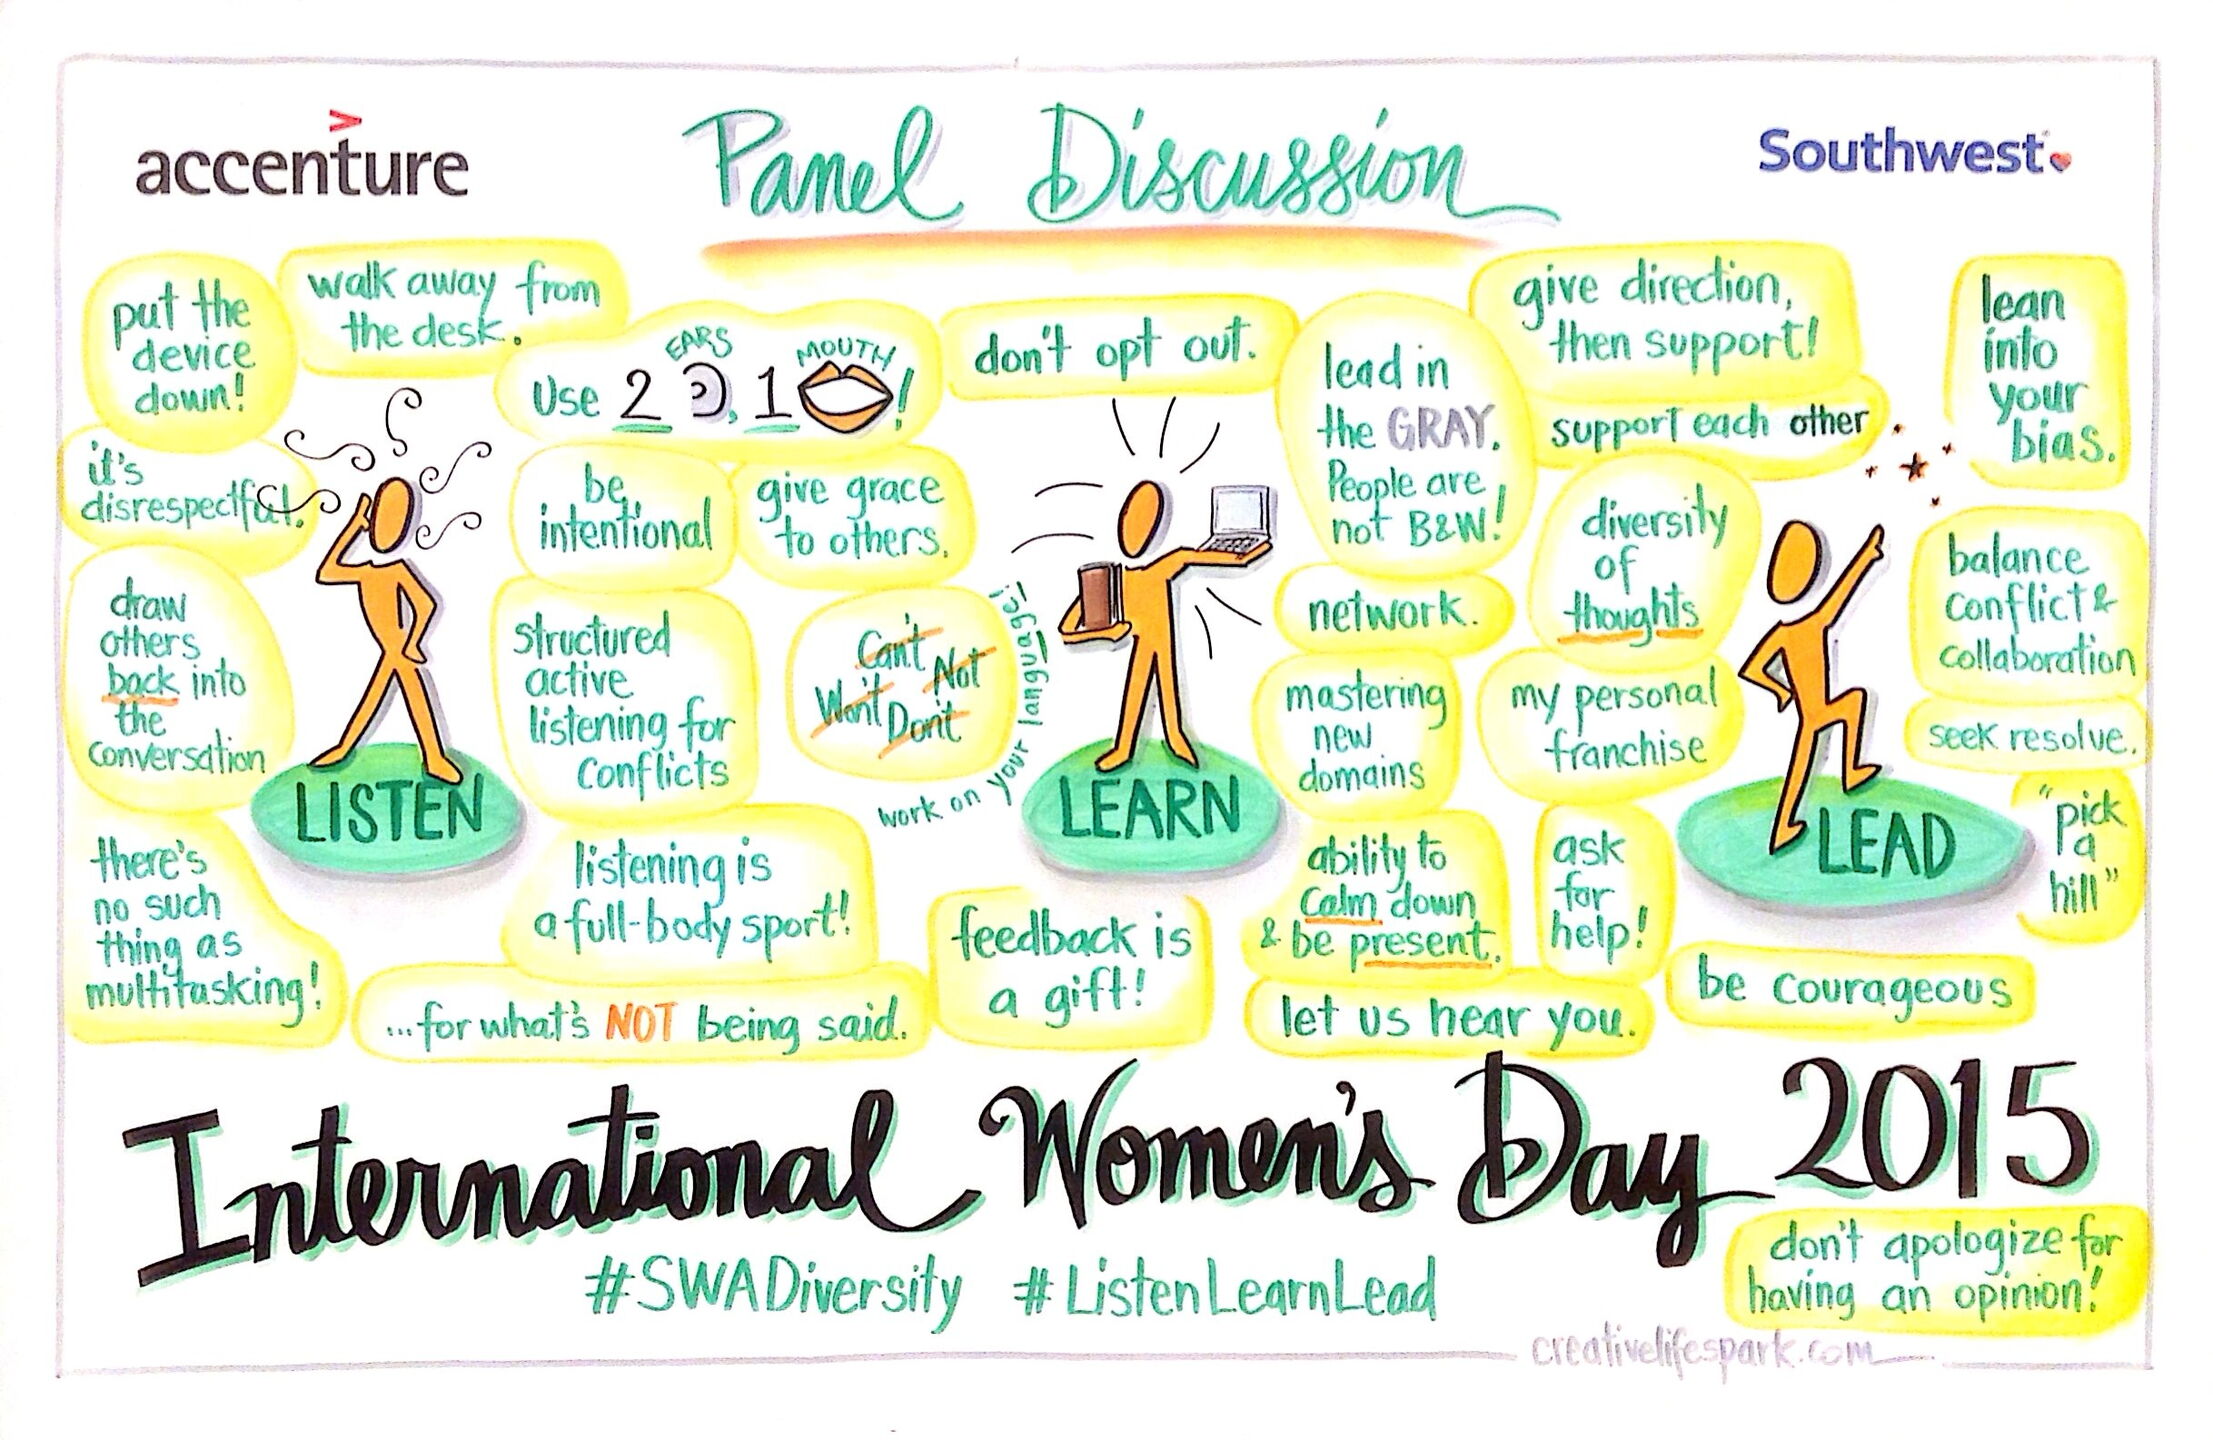 accenture
Panel Discussion
Southwest
put the
device
down!
walk away from
the desk.
EARS
MOUTH
Use 2 , 1 !
it's
disrespectful.
be
intentional
give grace
to others.
draw
others
back into
the
conversation
structured
active
listening for
conflicts
Can't
Not
Won't
Don't
work on your language!
LISTEN
there's
no such
thing as
multitasking!
listening is
a full-body sport!
...for what's NOT being said.
don't opt out.
LEARN
feedback is
a gift!
lead in
the GRAY.
People are
not B&W!
network.
mastering
new
domains
ability to
calm down
& be present.
let us hear you.
give direction,
then support!
support each other
diversity
of
thoughts
my personal
franchise
ask
for
help!
lean
into
your
bias.
balance
conflict &
collaboration
seek resolve.
"pick
a
hill"
LEAD
be courageous
International Women's Day 2015
#SWADiversity #ListenLearnLead
don't apologize for
having an opinion!
creativelifespark.com